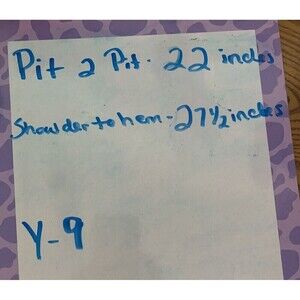 Pit 2 Pit - 22 inches
Showlder to hem - 27 1/2 inches
Y-9